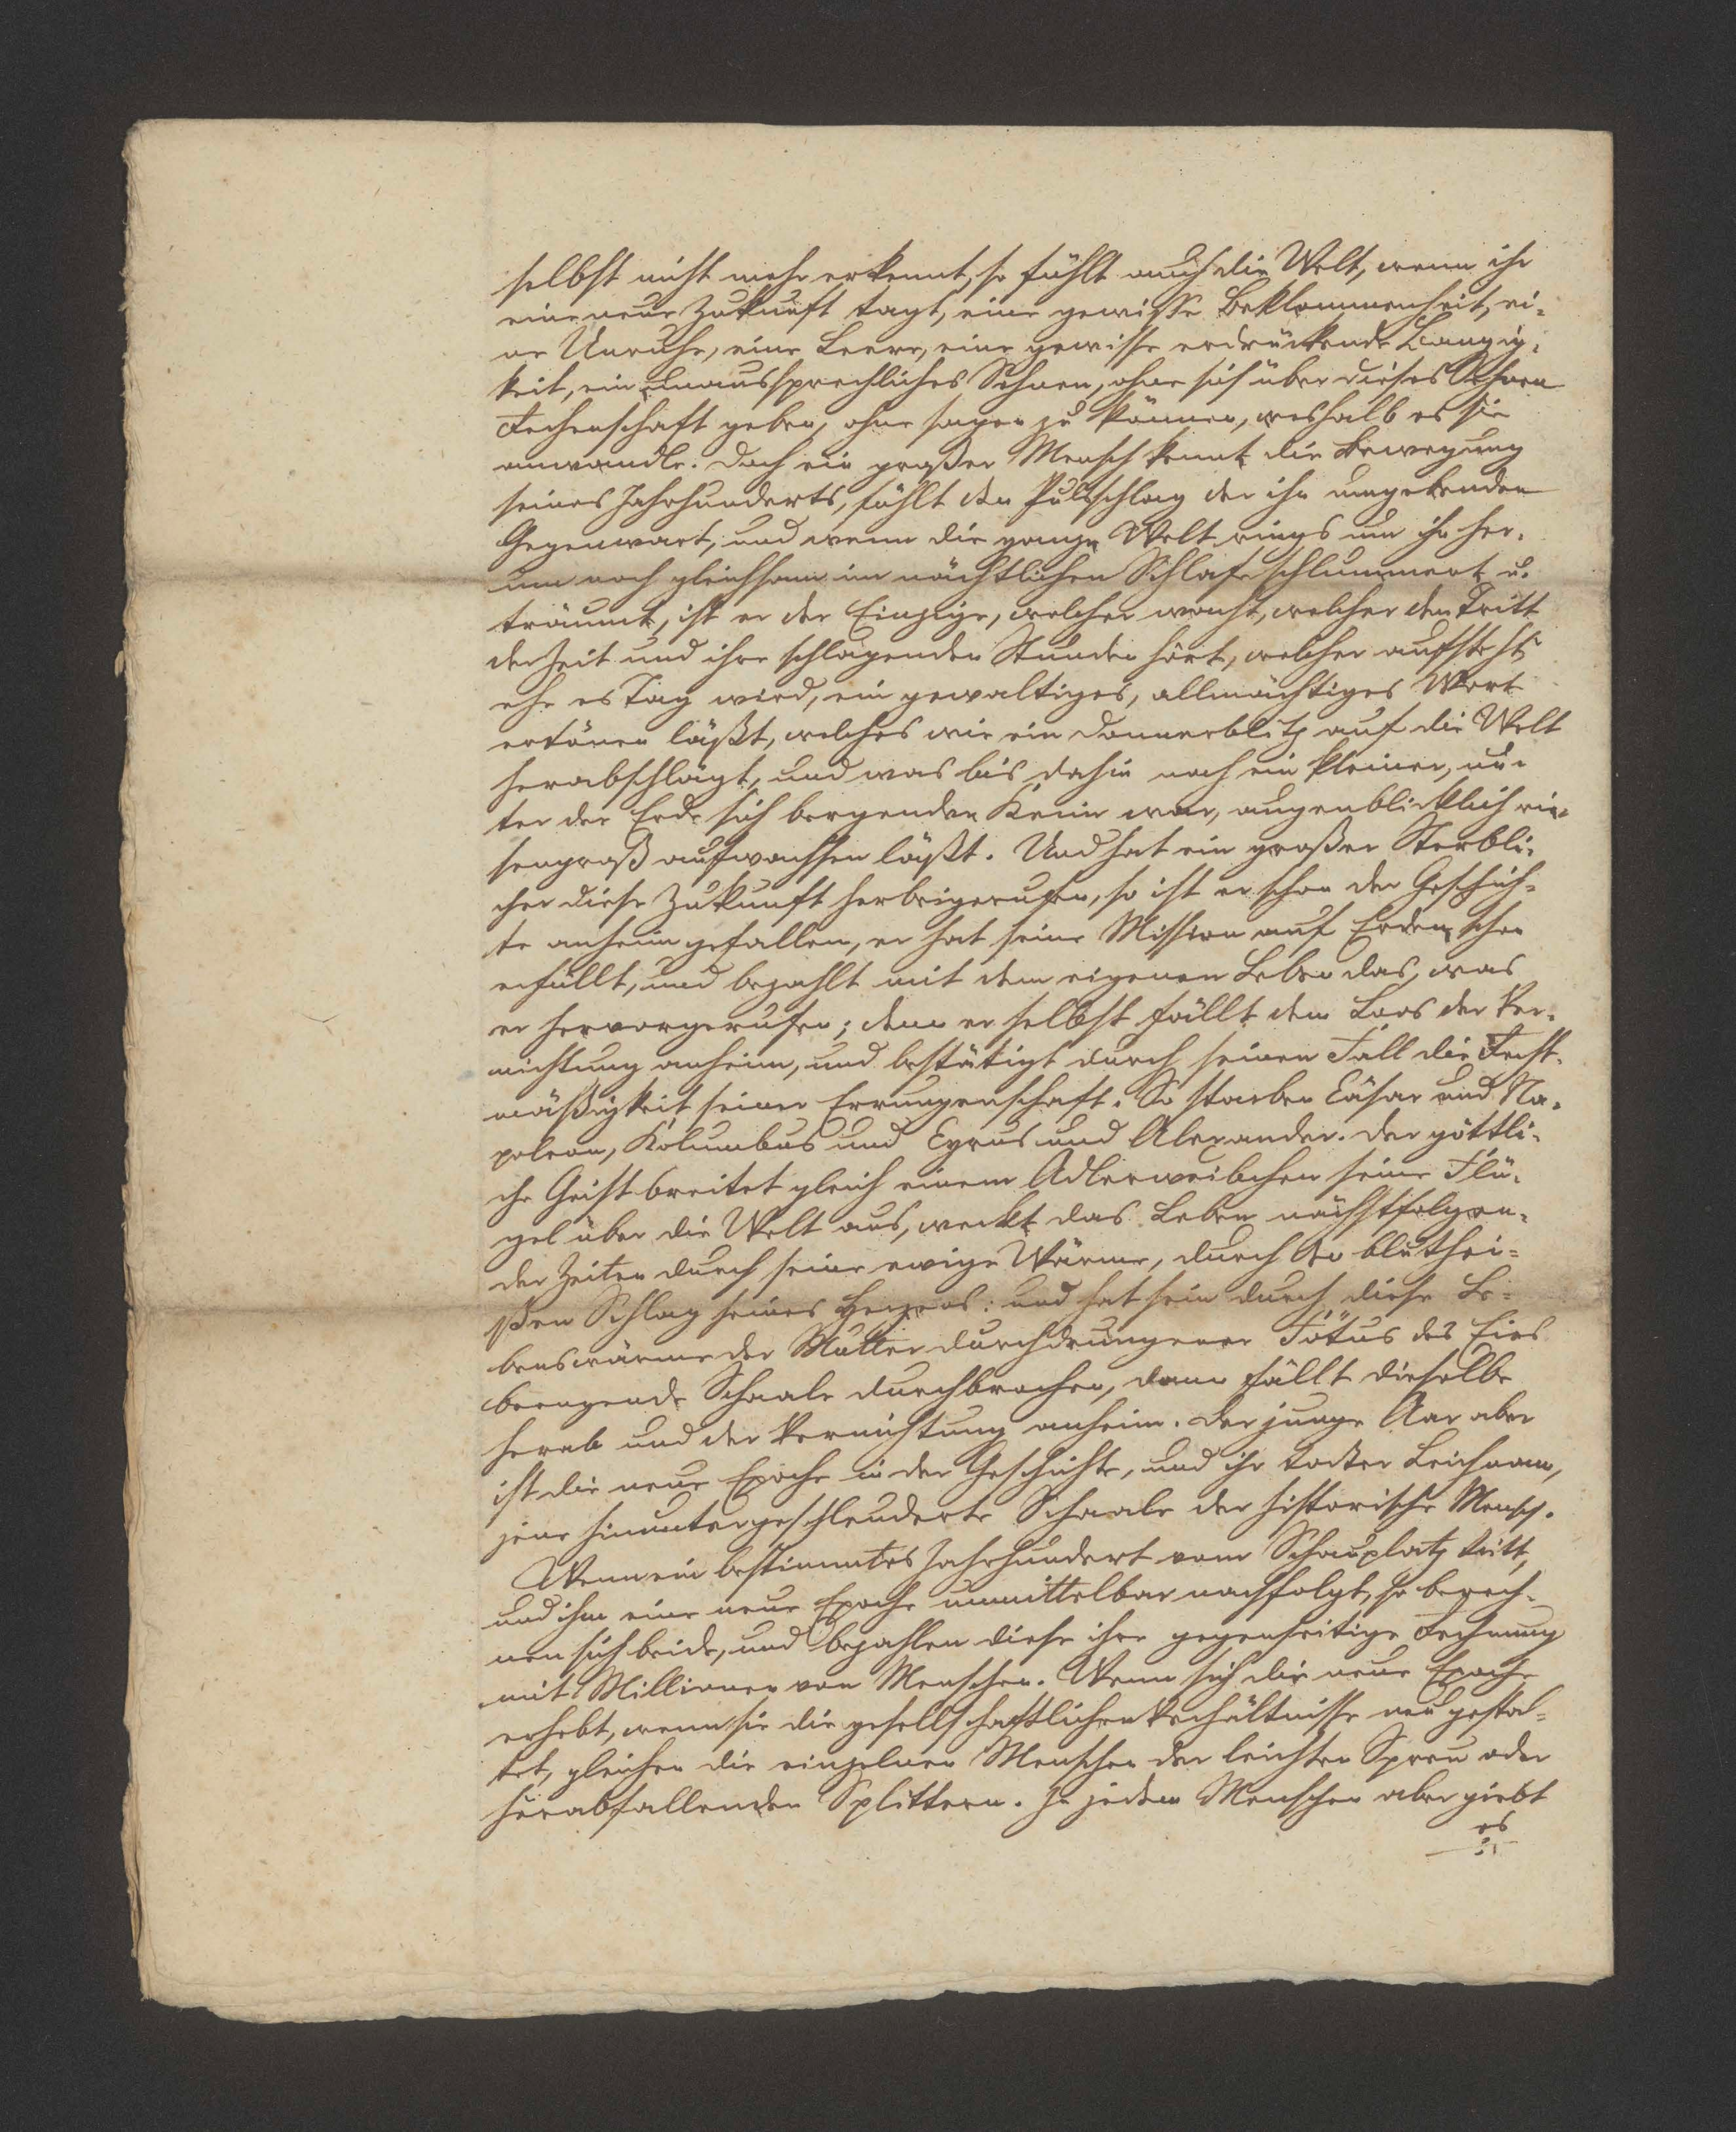 selbst nicht mehr erkennt, so fühlt auch die Welt, wenn ihr
eine neue Zukunft tagt, eine gewisse Beklommenheit, ei-
ne Unruhe, eine Leere, eine gewisse erdrückende Bangig-
keit, ein unaussprechliches Sehnen, ohne sich über dieses Sehnen
Rechenschaft geben, ohne sagen zu können, weshalb es sie
anwandle. Doch ein großer Mensch kennt die Bewegung
seines Jahrhunderts, fühlt den Pulsschlag der ihn umgebenden
Gegenwart, und wenn die ganze Welt rings um ihn her-
um noch gleichsam im nächtlichen Schlafe schlummert u.
träumt, ist er der Einzige, welcher wacht, welcher den Tritt
der Zeit und ihre schlagenden Stunden hört, welcher aufsteht,
ehe es Tag wird, ein gewaltiges, allmächtiges Wort
ertönen läßt, welches wie ein Donnerblitz auf die Welt
herabschlägt, und was bis dahin noch ein kleiner, un-
ter der Erde sich bergender Keim war, augenblicklich rie-
sengroß aufwachsen läßt. Und hat ein großer Sterbli-
cher diese Zukunft herbeigerufen, so ist er schon der Geschich-
te anheim gefallen, er hat seine Mission auf Erden schon
erfüllt, und bezahlt mit dem eigenen Leben das, was
er hervorgerufen; denn er selbst fällt dem Loos der Ver-
nichtung anheim, und bestätigt durch seinen Fall die Recht-
mäßigkeit seiner Errungenschaft. So starben Cäsar und Na-
poleon, Kolumbus und Cyrus und Alexander. Der göttli-
che Geist breitet gleich einem Adlerweibchen seine Flü-
gel über die Welt aus, weckt das Leben nächstfolgen-
der Zeiten durch seine ewige Wärme, durch den bluthei-
ßen Schlag seines Herzens: und hat sein durch diese Le-
benswärme der Mutter durchdrungener Fötus des Eies
beengende Schaale durchbrochen, dann fällt dieselbe
herab und der Vernichtung anheim. Der junge Aar aber
ist die neue Epoche in der Geschichte, und ihr todter Leichnam,
jene hinuntergeschleuderte Schaale der historische Mensch.
Wenn ein bestimmtes Jahrhundert vom Schauplatz tritt,
und ihm eine neue Epoche unmittelbar nachfolgt, so berech-
nen sich beide, und bezahlen diese ihre gegenseitige Rechnung
mit Millionen von Menschen. Wenn sich die neue Epoche
erhebt, wenn sie die gesellschaftlichen Verhältnisse neu gestal-
tet, gleichen die einzelnen Menschen der leichten Spreu oder
herabfallenden Splittern. In jedem Menschen aber giebt
es